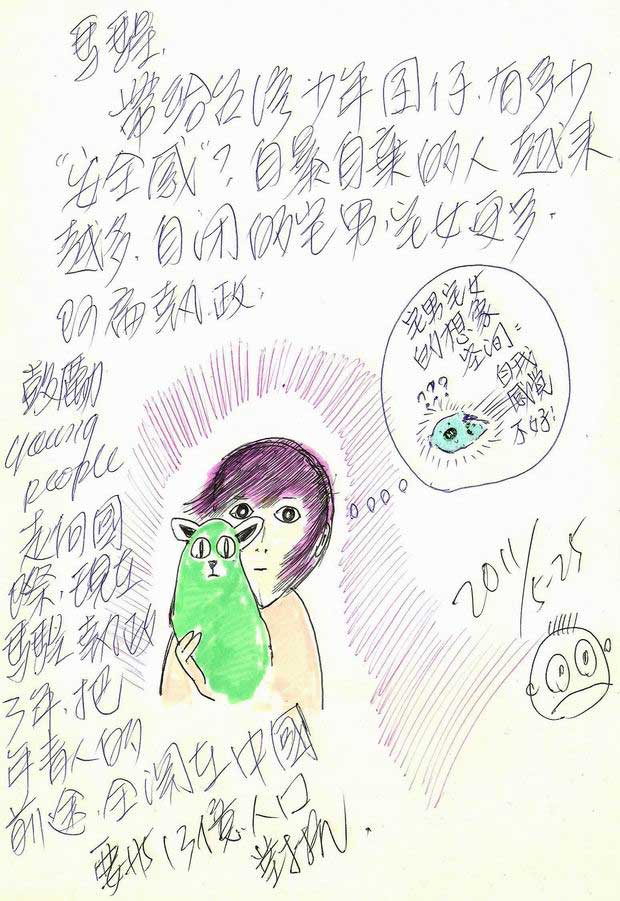 馬醒.
帶給台灣少年囝仔.有多少
"安全感"?自暴自棄的人越來
越多.自閉的宅男、宅女更多.
阿扁執政:
鼓勵
young
people
走向國
際,現在
馬醒執政
3年,把
年青人的
前途.全濶在中國
要找13億人口
宅男宅女
的想象
空間:
自我
感覺
不好!
???
2011/5-25